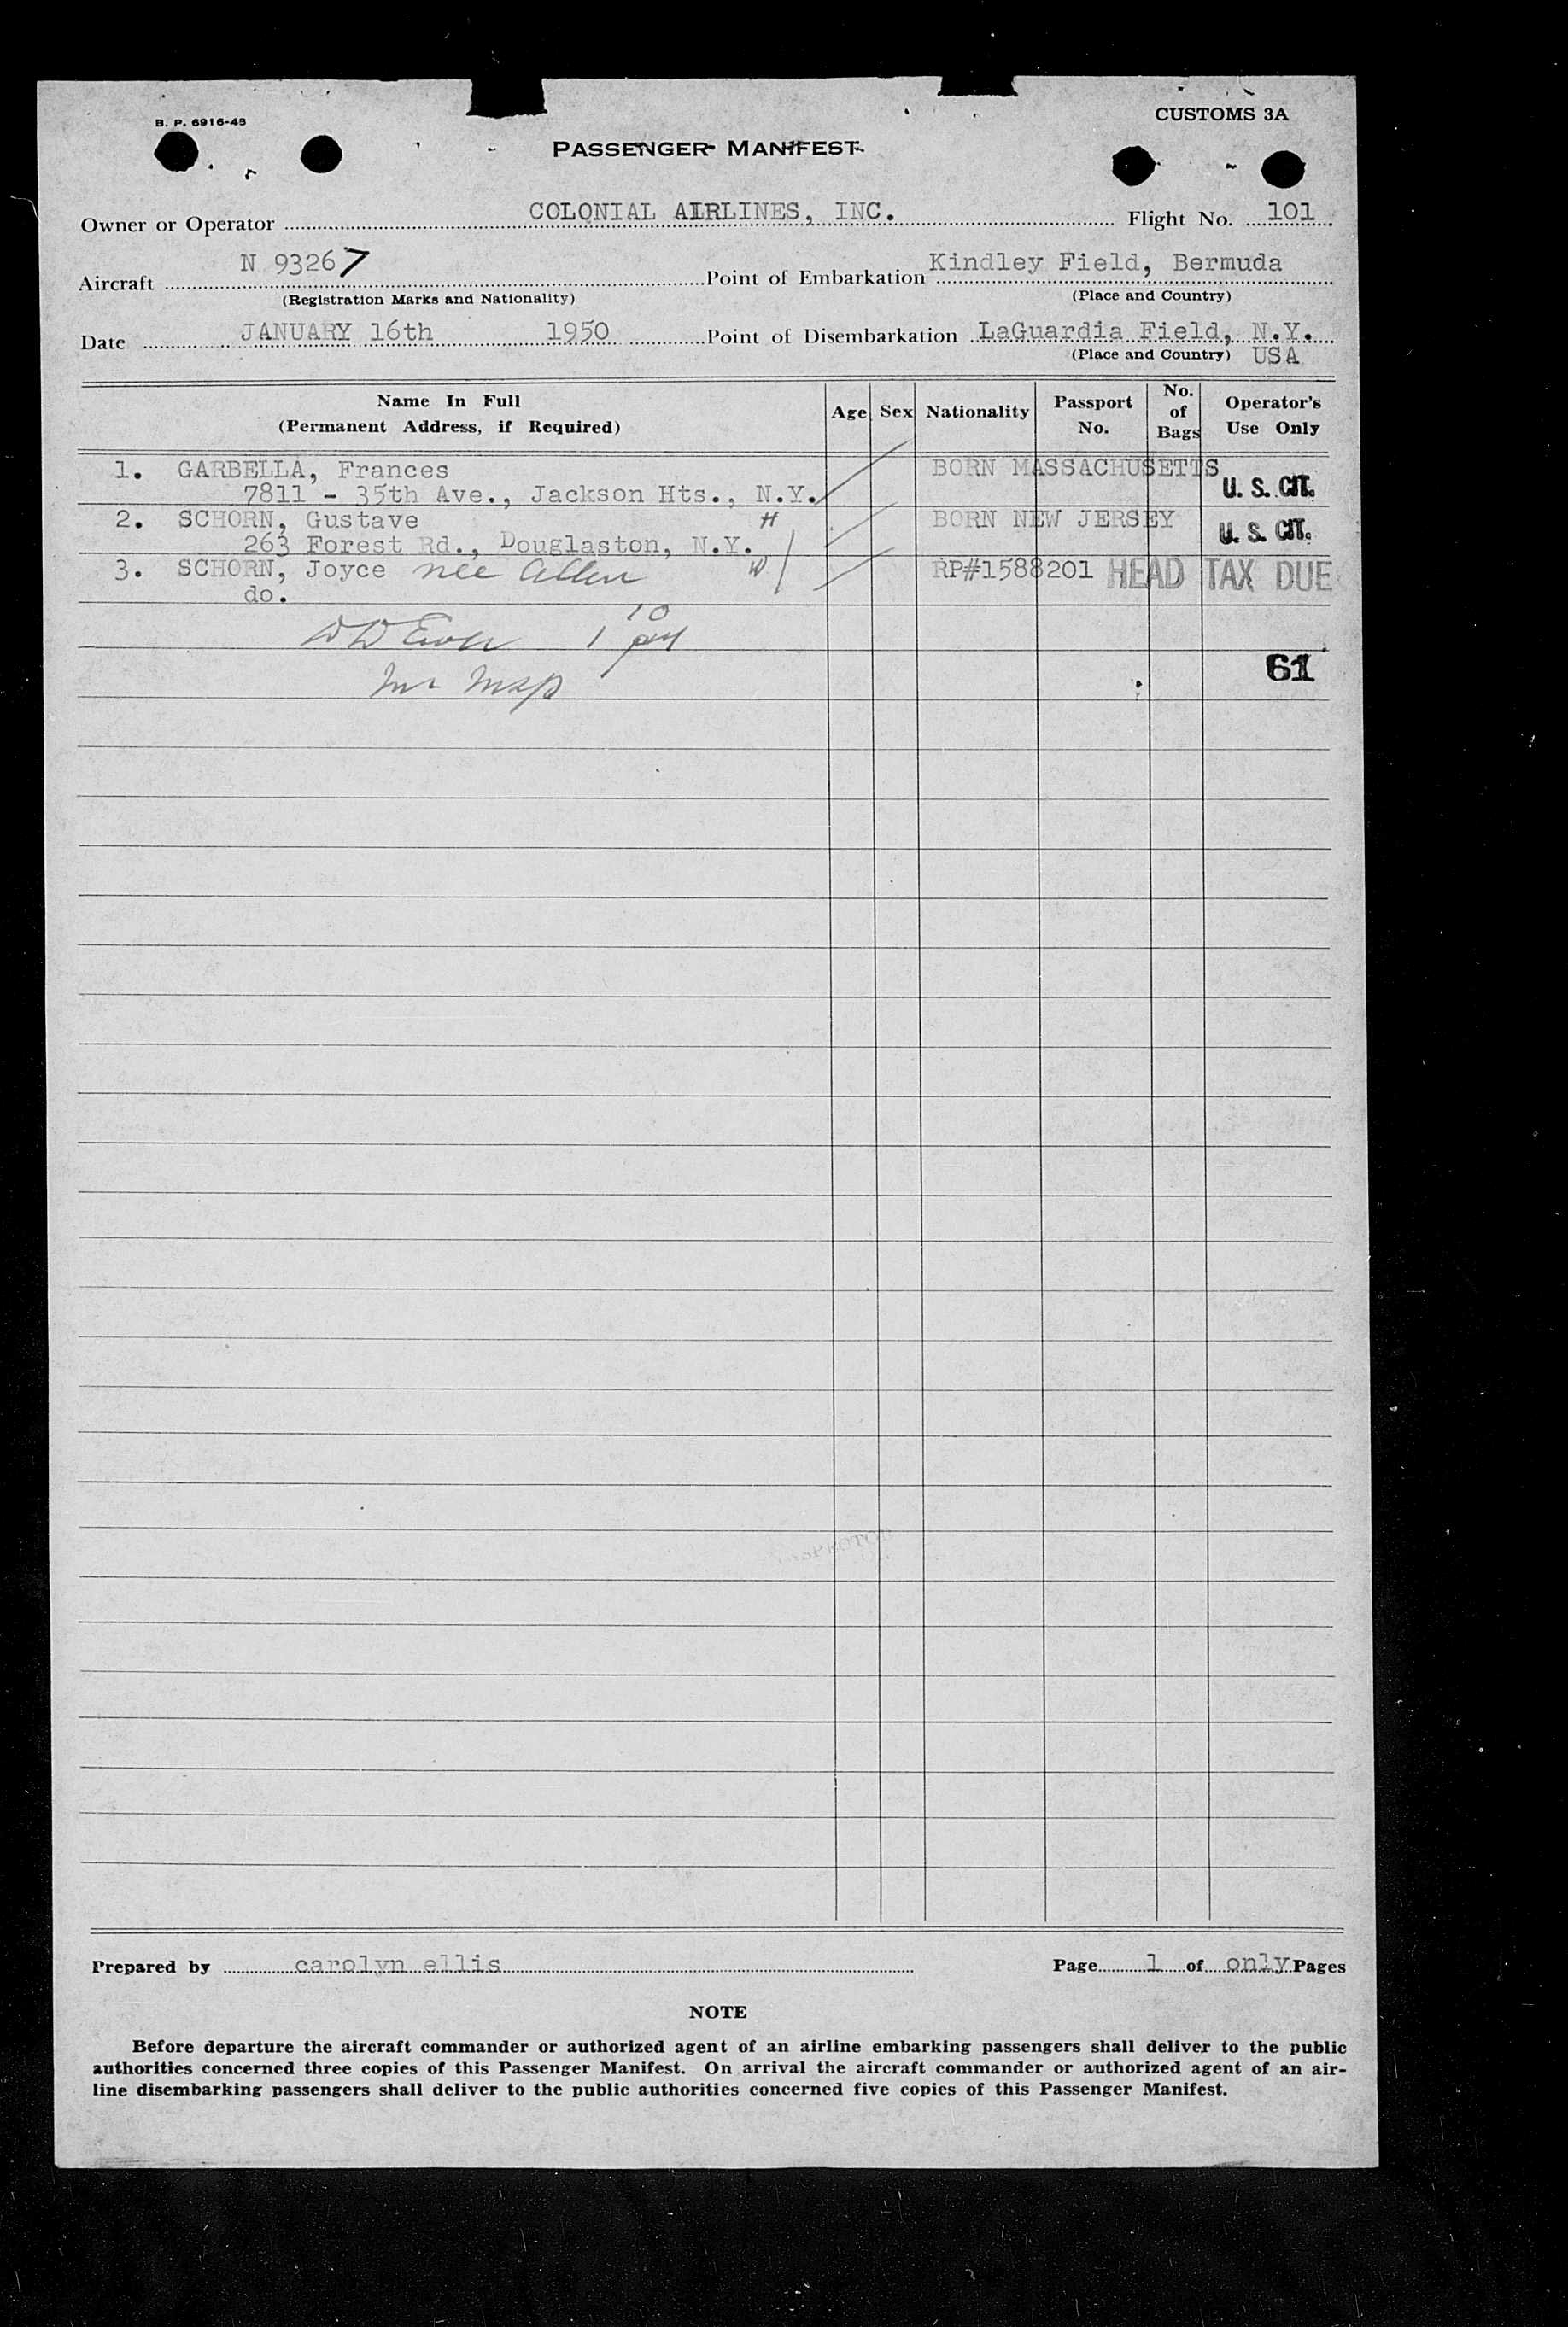 B. P. 6916-48
CUSTOMS 3A
PASSENGER MANIFEST
Owner or Operator COLONIAL AIRLINES, INC. Flight No. 101
Aircraft N 93267 Point of Embarkation Kindley Field, Bermuda
(Registration Marks and Nationality) (Place and Country)
Date JANUARY 16th 1950 Point of Disembarkation LaGuardia Field, N.Y.
(Place and Country) USA
Name In Full
(Permanent Address, if Required)
Age Sex Nationality Passport No. No. of Bags Operator's Use Only
1. GARBELLA, Frances BORN MASSACHUSETTS
7811 - 35th Ave., Jackson Hts., N.Y. U. S. CIT.
2. SCHORN, Gustave H BORN NEW JERSEY
263 Forest Rd., Douglaston, N.Y. U. S. CIT.
3. SCHORN, Joyce nee Allen W RP#1588201 HEAD TAX DUE
do.
10
61
Prepared by carolyn ellis Page 1 of only Pages
NOTE
Before departure the aircraft commander or authorized agent of an airline embarking passengers shall deliver to the public
authorities concerned three copies of this Passenger Manifest. On arrival the aircraft commander or authorized agent of an air-
line disembarking passengers shall deliver to the public authorities concerned five copies of this Passenger Manifest.